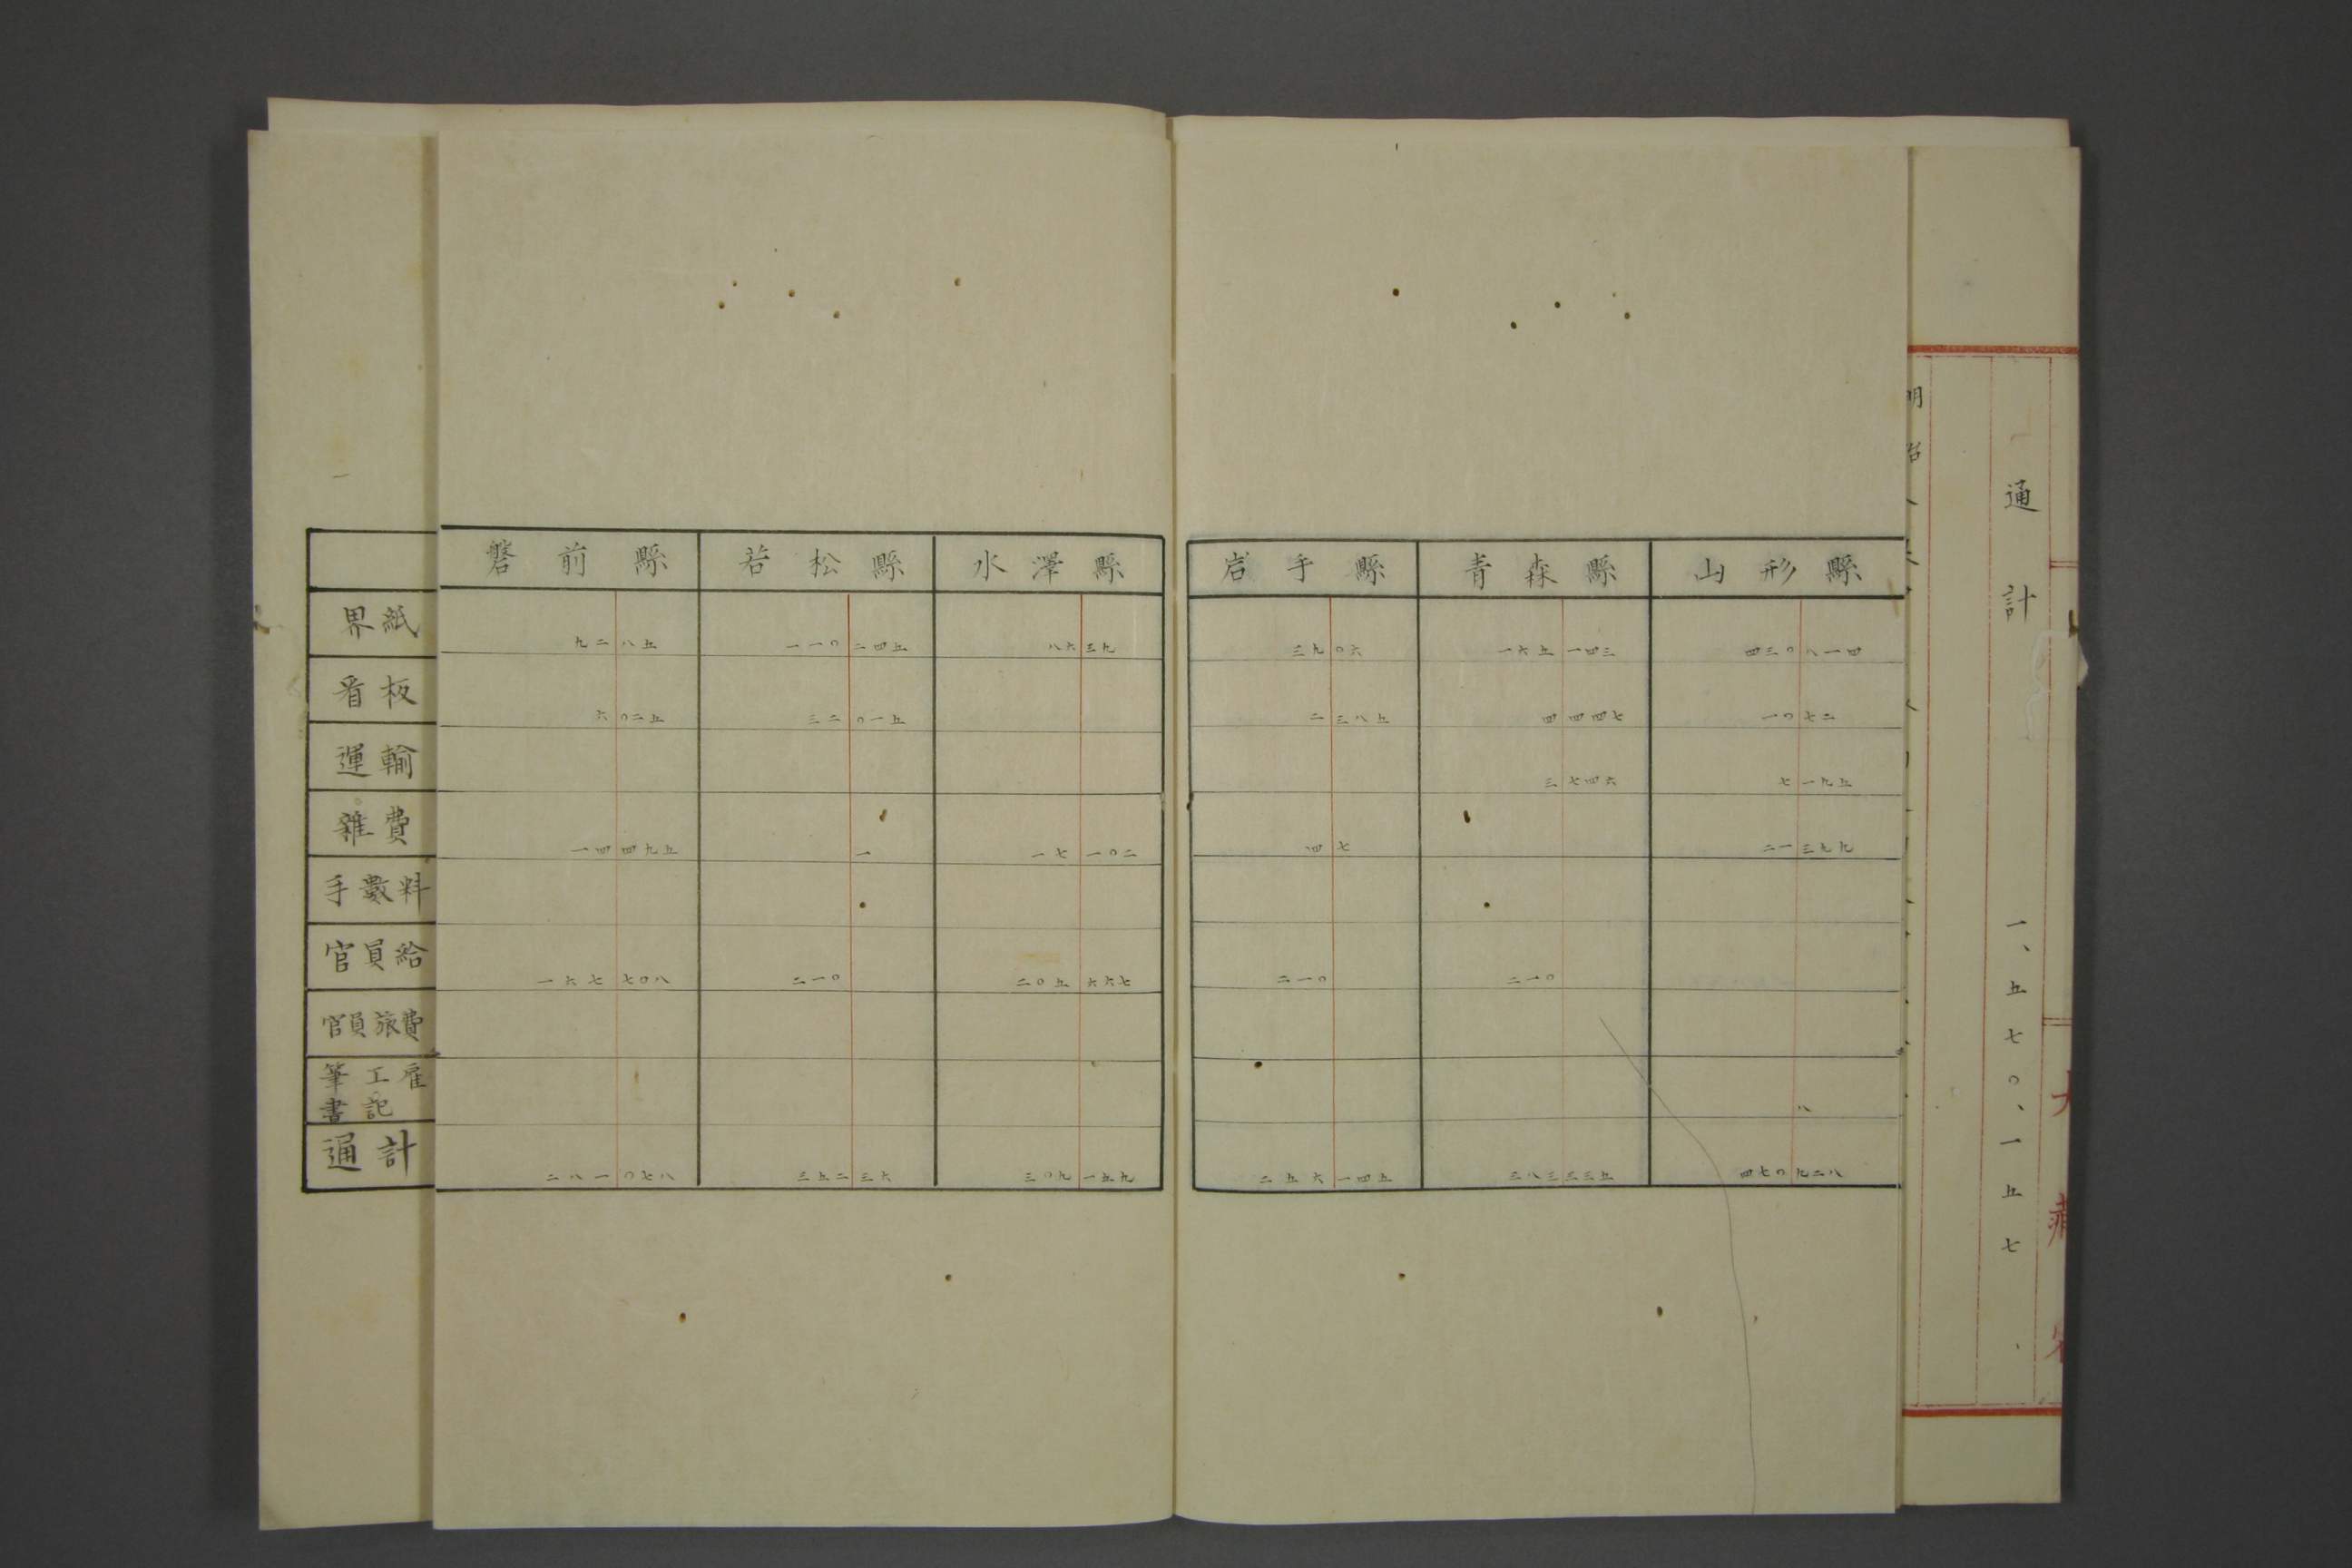 磐前縣 若松縣 水澤縣 岩手縣 青森縣 山形縣
界紙 九二八五 一一〇二四五 八六三九 三九〇六 一六五一四三 四三〇八一四
看板 六〇二五 三二〇一五 二三八五 四四四七 一〇七二
運輸 三七四六 七一九五
雜費 一四四九五 一 一七一〇二 四七 二一三九九
手數料
官員給 一六七七〇八 二一〇 二〇五六六七 二一〇 二一〇
官員旅費
筆工雇
書記 八
通計 二八一〇七八 三五二三六 三〇九一五九 二五六一四五 三八三三三五 四七〇九二八
通計 一、五七〇、一五七、
明治
大藏省